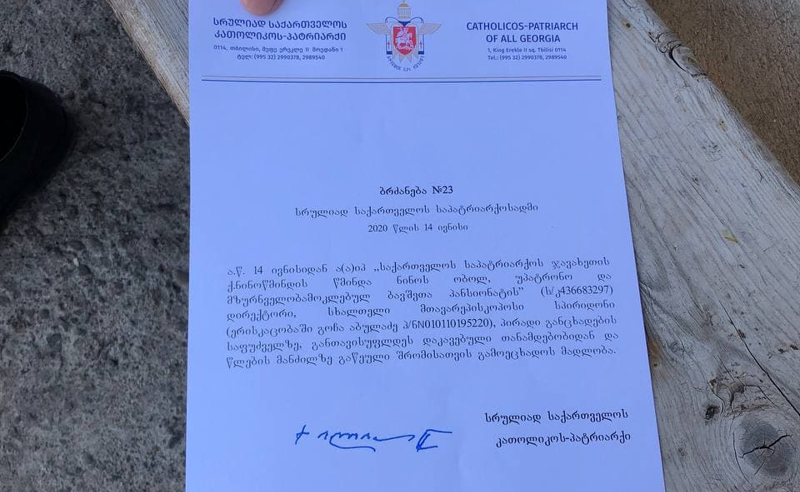 სრულიად საქართველოს
კათოლიკოს-პატრიარქი
0114, თბილისი, მეფე ერეკლე II მოედანი 1
ტელ: (995 32) 2990378, 2989540
CATHOLICOS-PATRIARCH
OF ALL GEORGIA
1, King Erekle II sq. Tbilisi 0114
Tel.: (995 32) 2990378, 2989540
ბრძანება №23
სრულიად საქართველოს საპატრიარქოსადმი
2020 წლის 14 ივნისი
ა.წ. 14 ივნისიდან ა(ა)იპ „საქართველოს საპატრიარქოს ჯავახეთის
ქ.ნინოწმინდის წმინდა ნინოს ობოლ, უპატრონო და
მზურნველობამოკლებულ ბავშვთა პანსიონატის” (ს/კ436683297)
დირექტორი, სხალთელი მთავარეპისკოპოსი სპირიდონი
(ერისკაცობაში გოჩა აბულაძე პ/ნN010110195220), პირადი განცხადების
საფუძველზე, განთავისუფლდეს დაკავებული თანამდებობიდან და
წლების მანძილზე გაწეული შრომისათვის გამოეცხადოს მადლობა.
სრულიად საქართველოს
კათოლიკოს-პატრიარქი